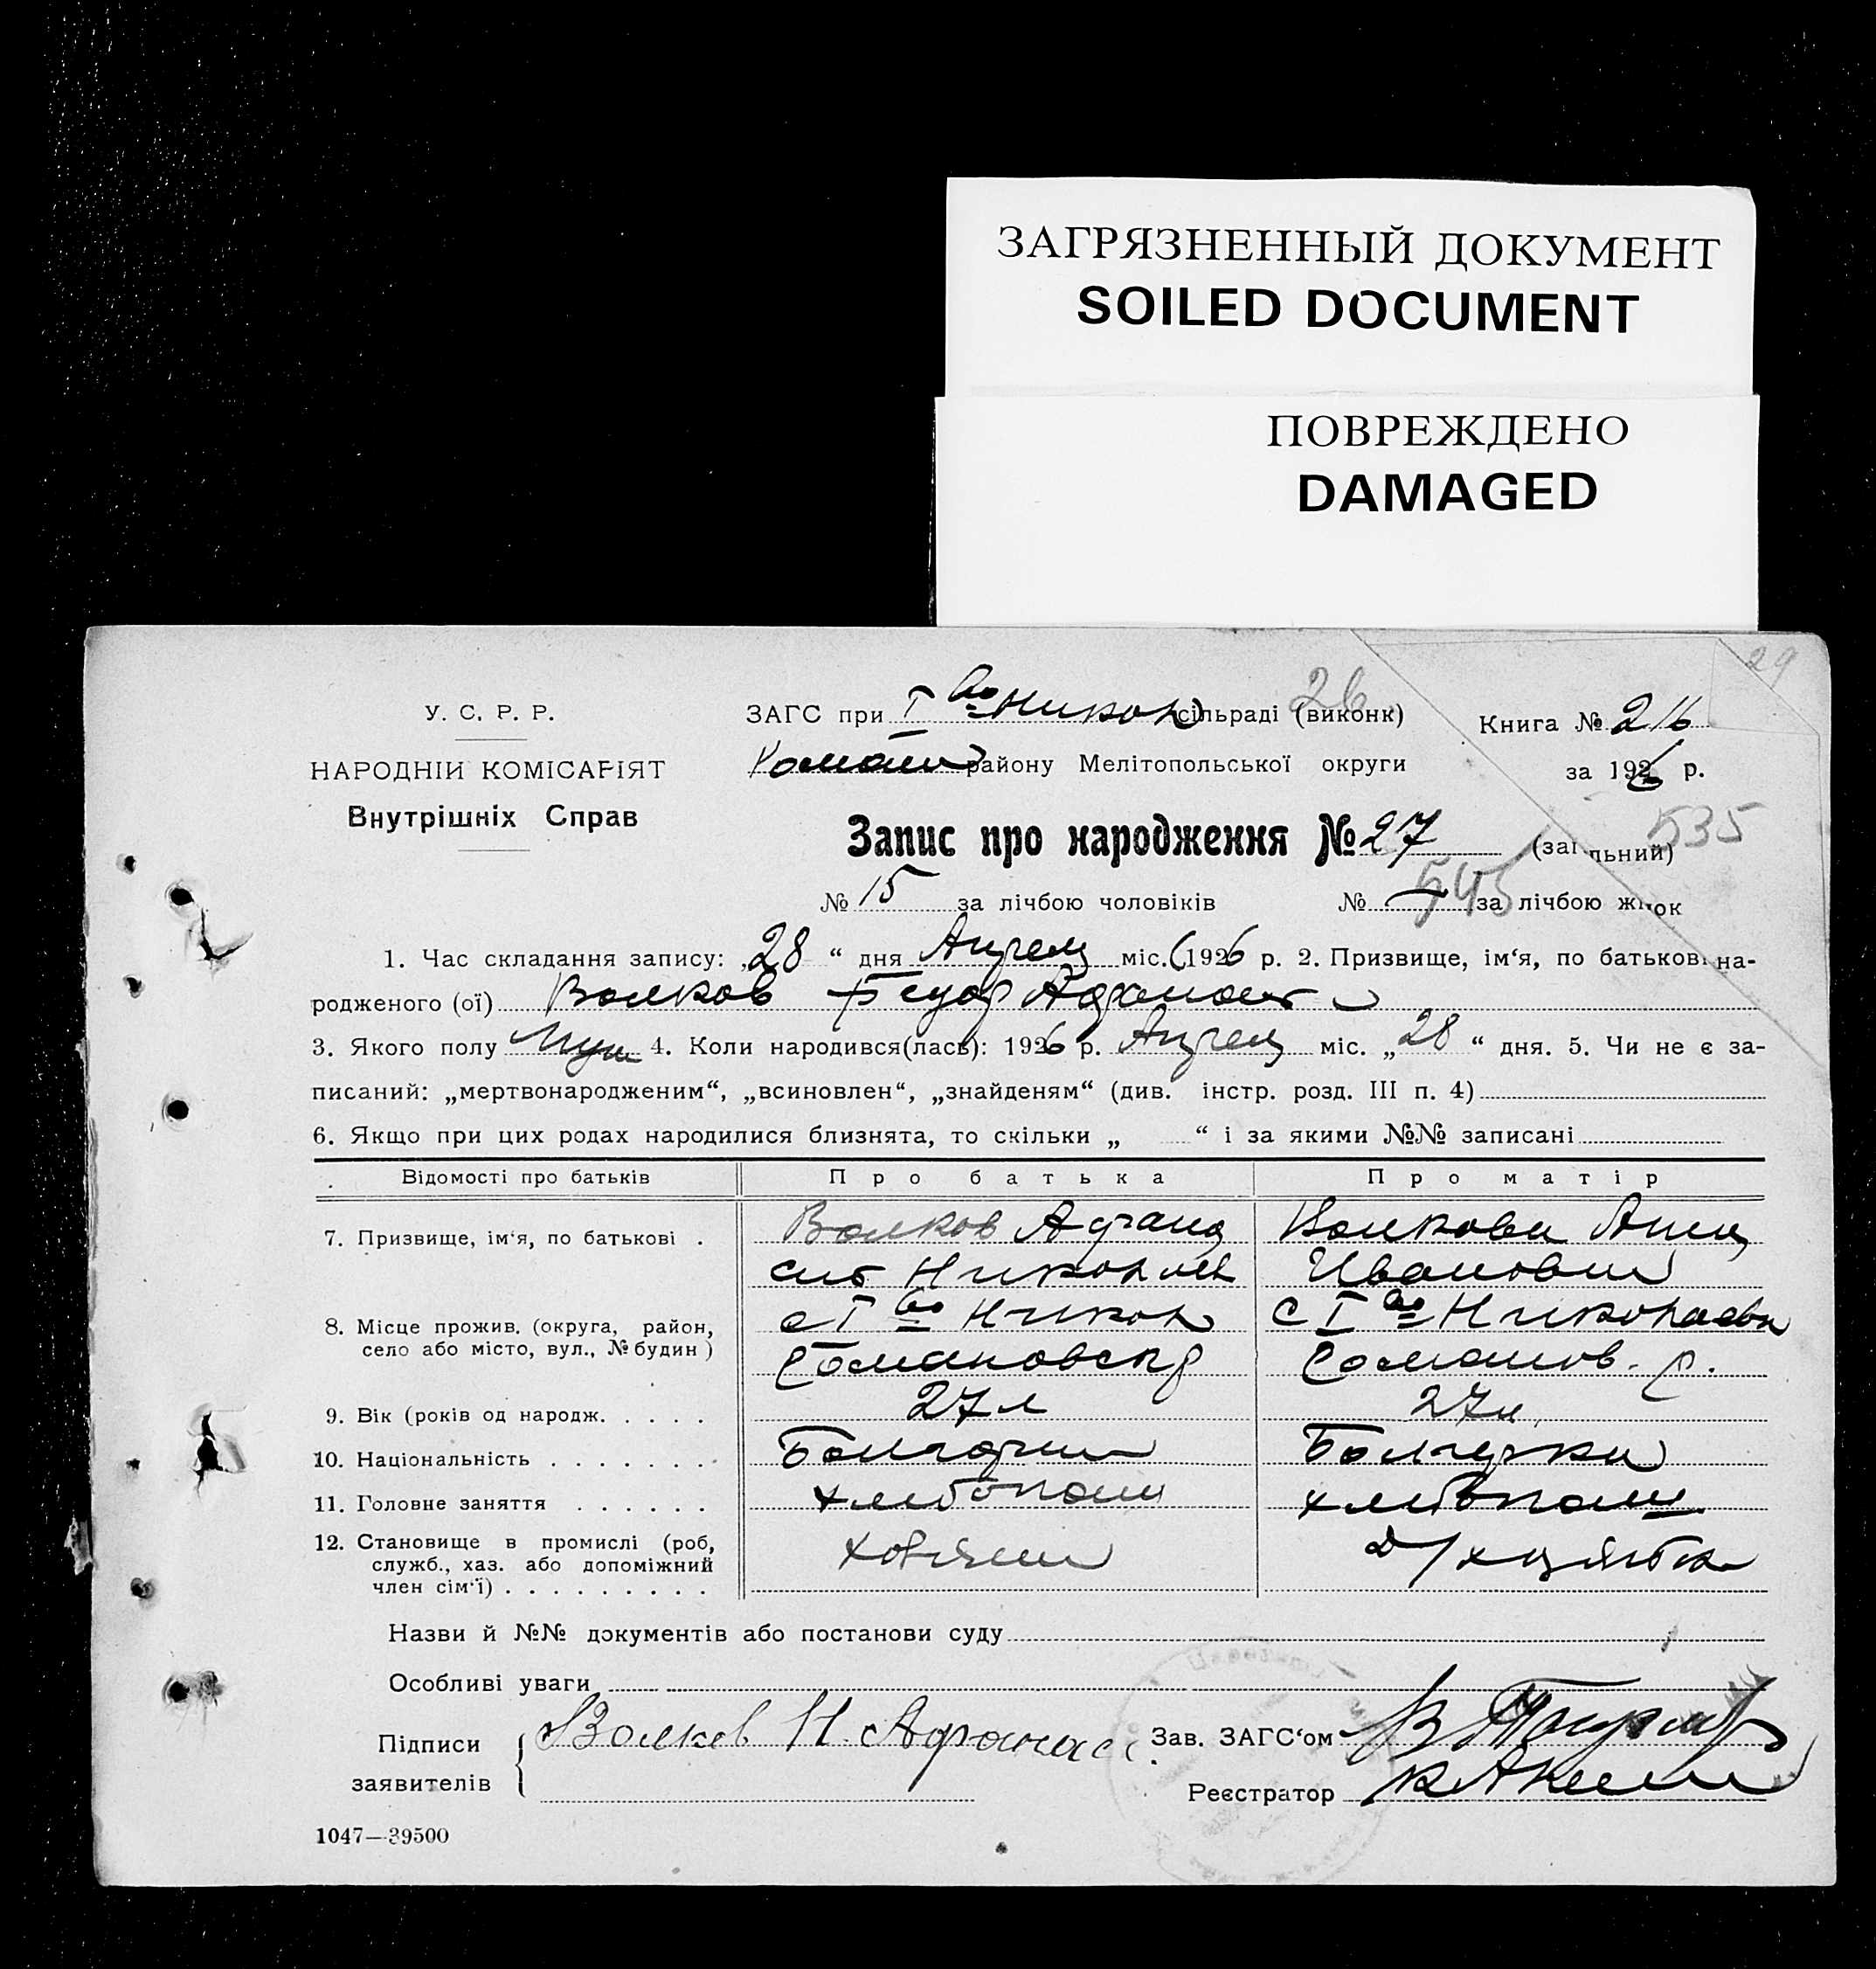 ЗАГРЯЗНЕННЫЙ ДОКУМЕНТ
SOILED DOCUMENT
ПОВРЕЖДЕНО
DAMAGED
29
У. С. Р. Р.
НАРОДНІЙ КОМІСАРІЯТ
Внутрішніх Справ
ЗАГС при I во Никол сільраді (виконк) 26
Роман району Мелітопольської округи
Книга № 216
за 1926 р.
535
Запис про народження № 27 (загальний)
№ 15 за лічбою чоловіків № — за лічбою жінок
545
1. Час складання запису: „28 “ дня Апреля міс. 1926 р. 2. Призвище, ім‘я, по батькові на-
родженого (ої) Волков Федор Афанас
3. Якого полу Муж 4. Коли народився(лась): 1926 р. Апреля міс. „28 “ дня. 5. Чи не є за-
писаний: „мертвонародженим“, „всиновлен“, „знайденям“ (див. інстр. розд. III п. 4)
6. Якщо при цих родах народилися близнята, то скільки „ “ і за якими №№ записані
Відомості про батьків Про батька Про матір
7. Призвище, ім‘я, по батькові . Волков Афана Волкова Анна
сий Николаев Ивановна
8. Місце прожив. (округа, район, село або місто, вул., № будин) с I во Никол с I во Николаевка
Романовск р Романов. р.
9. Вік (років од народж. . . . . 27 л 27 л.
10. Національність . . . . . . . Болгарин Болгарка
11. Головне заняття . . . . . . хлебопаш хлебопаш
12. Становище в промислі (роб, служб., хаз. або допоміжний член сім‘ї) . . . . . . . . . хозяин д/хозяйка
Назви й №№ документів або постанови суду
Особливі уваги
Підписи заявителів { Волков Н. Афанас
Зав. ЗАГС‘ом
Реєстратор
1047—39500